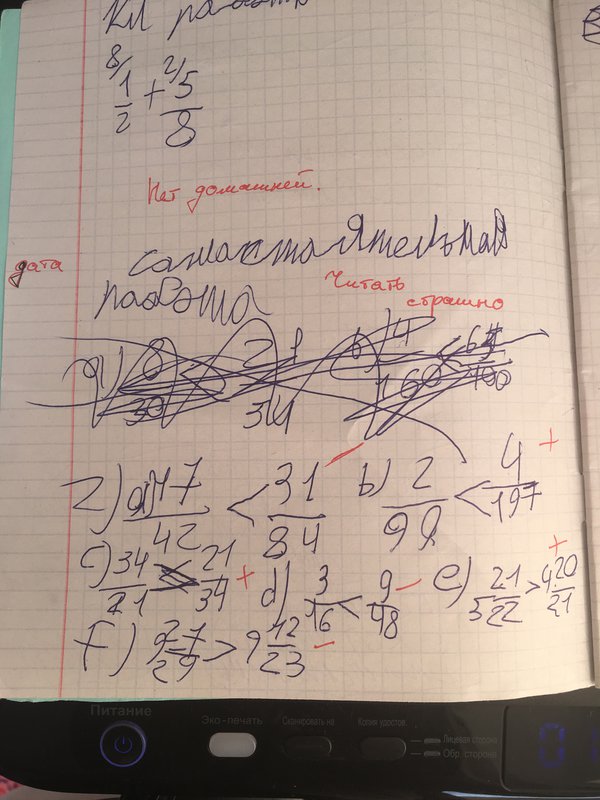 Кл работа
8/ 1/2 + 2/ 5/8
Нет домашней.
дата
самостоятельная
работа
Читать
страшно
2) a) 17/42 < 31/84 b) 2/98 < 4/197 +
c) 34/21 21/34 + d) 3/16 < 9/48 - e) 5 21/22 > 4 20/21 +
f) > 9 12/23 -
Питание
Эко-печать
Сканировать на
Копия удостов.
Лицевая сторона
Обр. сторона